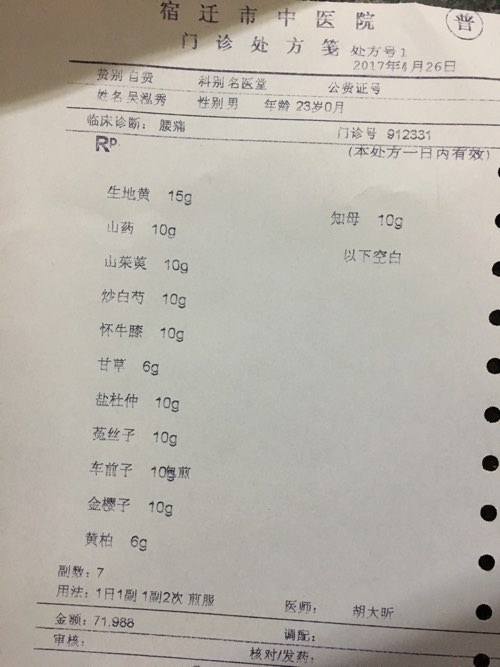 宿迁市中医院
普
门诊处方笺 处方号1
2017年4月26日
费别 自费 科别 名医堂 公费证号
姓名 吴泓秀 性别 男 年龄 23岁0月
临床诊断： 腰痛 门诊号 912331
Rp. (本处方一日内有效)
生地黄 15g 知母 10g
山药 10g 以下空白
山茱萸 10g
炒白芍 10g
怀牛膝 10g
甘草 6g
盐杜仲 10g
菟丝子 10g
车前子 10g包煎
金樱子 10g
黄柏 6g
副数：7
用法：1日1副 1副2次 煎服 医师： 胡大昕
金额：71.988 调配：
审核： 核对/发药：